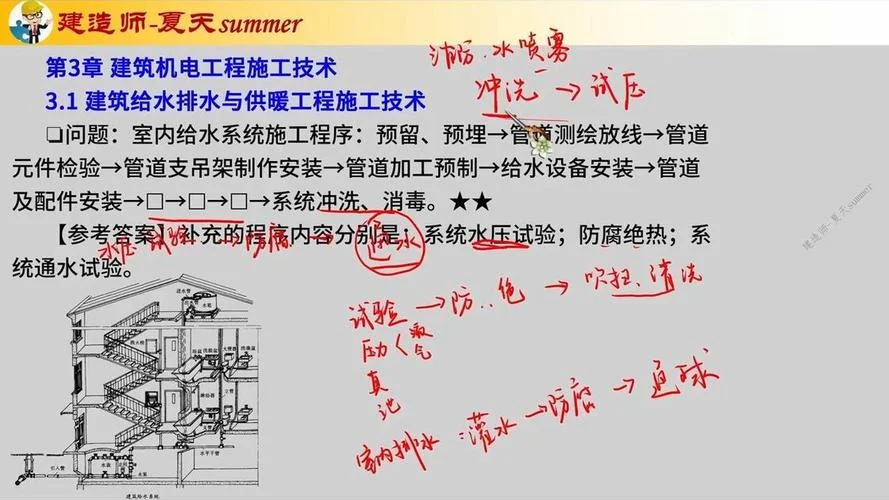 建造师-夏天summer
消防.水喷雾
冲洗→试压
第3章 建筑机电工程施工技术
3.1 建筑给水排水与供暖工程施工技术
❑问题：室内给水系统施工程序：预留、预埋→管道测绘放线→管道
元件检验→管道支吊架制作安装→管道加工预制→给水设备安装→管道
及配件安装→□→□→□→系统冲洗、消毒。★★
【参考答案】补充的程序内容分别是：系统水压试验；防腐绝热；系
统通水试验。
水压试验→防腐→通水
建造师-夏天summer
试验→防..绝→吹扫、清洗
压力<液
气
真
室内排水:灌水→防腐→通球
进水管
水箱
立管
水平干管
引入管
水表
水泵
建筑给水系统